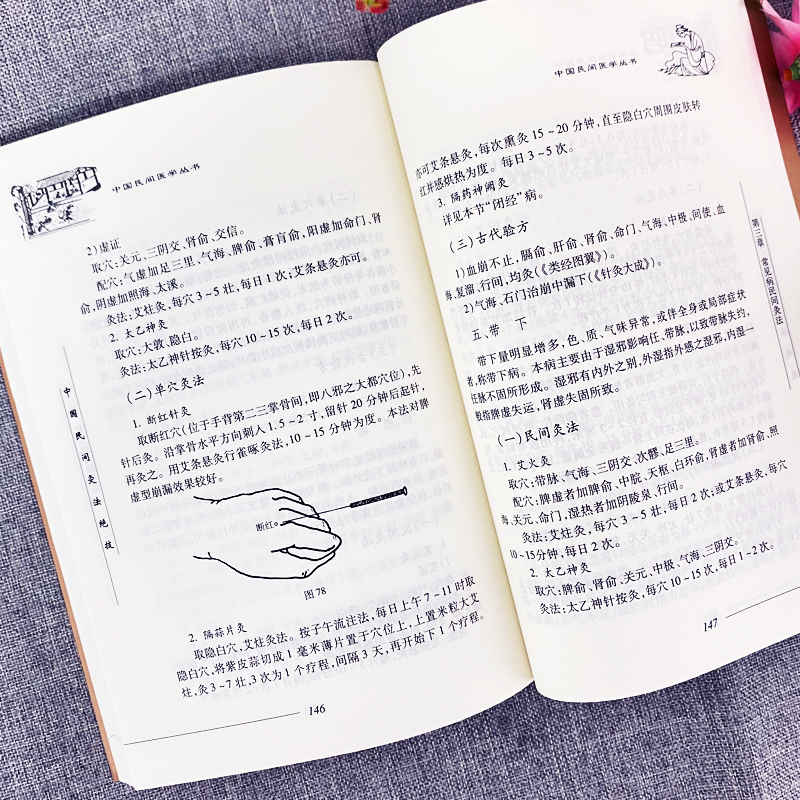 中国民间医学丛书
2)虚证
取穴:关元、三阴交、肾俞、交信。
配穴:气虚加足三里、气海、脾俞、膏肓俞,阳虚加命门、肾
俞,阴虚加照海、太溪。
灸法:艾炷灸,每穴3~5壮,每日1次;艾条悬灸亦可。
2. 太乙神灸
取穴:大敦、隐白。
灸法:太乙神针按灸,每穴10~15次,每日2次。
(二)单穴灸法
1. 断红针灸
取断红穴(位于手背第二三掌骨间,即八邪之大都穴位),先
针后灸。沿掌骨水平方向刺入1.5~2寸,留针20分钟后起针,
再灸之。用艾条悬灸行雀啄灸法,10~15分钟为度。本法对脾
虚型崩漏效果较好。
断红
图78
2. 隔蒜片灸
取隐白穴,艾炷灸法。按子午流注法,每日上午7~11时取
隐白穴,将紫皮蒜切成1毫米薄片置于穴位上,上置米粒大艾
炷,灸3~7壮,3次为1个疗程,间隔3天,再开始下1个疗程。
中国民间灸法绝技
146
中国民间医学丛书
亦可艾条悬灸,每次熏灸15~20分钟,直至隐白穴周围皮肤转
红并感烘热为度。每日3~5次。
3. 隔药神阙灸
详见本节“闭经”病。
(三)古代验方
1)血崩不止,膈俞、肝俞、肾俞、命门、气海、中极、间使、血
海、复溜、行间,均灸(《类经图翼》)。
2)气海、石门治崩中漏下(《针灸大成》)。
五、带 下
带下量明显增多,色、质、气味异常,或伴全身或局部症状
者,称带下病。本病主要由于湿邪影响任、带脉,以致带脉失约,
任脉不固所形成。湿邪有内外之别,外湿指外感之湿邪,内湿一
般指脾虚失运,肾虚失固所致。
(一)民间灸法
1. 艾火灸
取穴:带脉、气海、三阴交、次髎、足三里。
配穴:脾虚者加脾俞、中脘、天枢、白环俞,肾虚者加肾俞、照
海、关元、命门,湿热者加阴陵泉、行间。
灸法:艾炷灸,每穴3~5壮,每日2次;或艾条悬灸,每穴
10~15分钟,每日2次。
2. 太乙神灸
取穴:脾俞、肾俞、关元、中极、气海、三阴交。
灸法:太乙神针按灸,每穴10~15次,每日1~2次。
第三章 常见病民间灸法
147